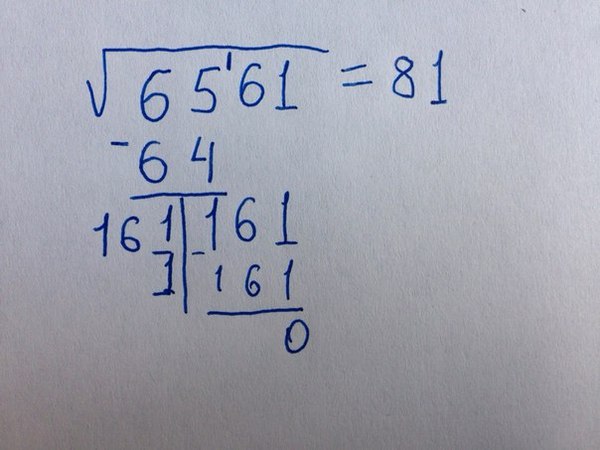 √65'61 = 81
-64
161|161
1|-161
0